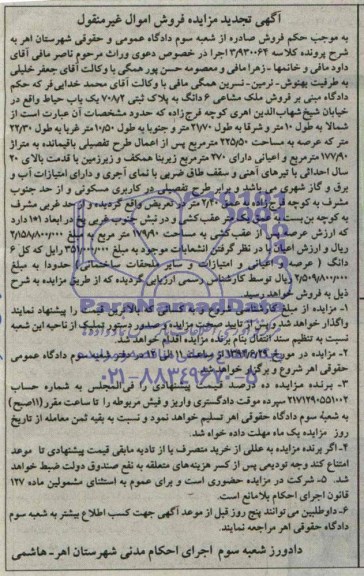 آگهی تجدید مزایده فروش اموال غیرمنقول
به موجب حکم فروش صادره از شعبه سوم دادگاه عمومی و حقوقی شهرستان اهر به
شرح پرونده کلاسه ۳/۹۳۰۰۶۴ اجرا در خصوص دعوی وراث مرحوم ناصر مافی آقای
داود مافی و خانمها - زهرا مافی و معصومه حسن پور همگی با وکالت آقای جعفر خلیلی
به طرفیت بهنوش - نرمین - نسرین همگی مافی با وکالت آقای محمد خدایی فر که حکم
دادگاه مبنی بر فروش ملک مشاعی ۶ دانگ به پلاک ثبتی ۷۰۸/۲ یک باب حیاط واقع در
خیابان شیخ شهاب الدین اهری کوچه فرج زاده که حدود مشخصات آن عبارت است از
شمالا به طول ۱۰ متر و شرقا به طول ۲۱/۷۰ متر و جنوبا به طول ۱۰/۵۰ متر غربا به طول ۲۲/۳۰
متر که عرصه به مساحت ۲۲۵/۵۰ مترمربع پس از اعمال طرح تفصیلی باقیمانده به متراژ
۱۷۷/۹۰ مترمربع و اعیانی دارای ۲۷۰ مترمربع زیربنا همکف و زیرزمین با قدمت بالای ۲۰
سال احداثی با تیرهای آهنی و سقف طاق ضربی با نمای آجری و دارای امتیازات آب و
برق و گاز شهری می باشد و برابر طرح تفصیلی در کاربری مسکونی و از حد جنوب
مشرف به کوچه فرج زاده به متر در تعریض واقع گردیده و از حد غربی مشرف
به کوچه بن بست به متر عقب کشی و در نبش جنوب غربی پخ در ابعاد ۱*۱ دارد
که ارزش عرصه پس از عقب کشی به مساحت ۱۷۷/۹۰ متر مربع به مبلغ ۲/۱۵۸/۸۰۰/۰۰۰
ریال و ارزش اعیان با در نظر گرفتن انشعابات موجود به مبلغ ۳۵۱/۰۰۰/۰۰۰ رایل که کل ۶
دانگ (عرصه و اعیانی و امتیازات و سایر ملحقات ساختمانی) جدودا به مبلغ
۲/۵۰۹/۸۰۰/۰۰۰ ریال توسط کارشناس رسمی ارزیابی گردیده که از طریق مزایده به شرح
ذیل به فروش خواهد رسید.
۱- مزایده از مبلغ کارشناسی شروع و به کسانی که بالاترین قیمت را پیشنهاد نمایند
واگذار خواهد شد و پس از تایید صحت مزایده و صدور دستور تملیک از ناحیه این شعبه
نسبت به تنظیم سند انتقال بنام برنده مزایده اقدام خواهد شد.
۲- مزایده در مورخ ۱۳۹۴/۶/۲۹ از ساعت ۱۱ الی ۱۲ در دفتر شعبه سوم دادگاه عمومی
حقوقی اهر شروع و برگزار خواهد شد.
۳- برنده مزایده ده درصد قیمت پیشنهادی را فی المجلس به شماره حساب
۲۱۷۱۲۹۰۵۵۱۰۰۲ سپرده موقت دادگستری واریز و فیش مربوطه را تا ساعت مقرر (۱۱صبح)
به شعبه سوم دادگاه حقوقی اهر تسلیم خواهد نمود و نسبت به بقیه ثمن معامله از تاریخ
روز مزایده یک ماه مهلت داده خواه شد.
۴- اگر برنده مزایده به عللی از خرید منصرف یا از تادیه مابقی قیمت پیشنهادی تا موعد
امتناع کند وجه تودیعی پس از کسر هزینه‌های متعلقه به نفع صندوق دولت ضبط خواهد
شد. ۵- شرکت در مزایده حضوری است و برای عموم به استثنای مشمولین ماده ۱۲۷
قانون اجرای احکام بلامانع است.
۶- داوطلبین می توانند پنج روز قبل از موعد آگهی جهت کسب اطلاع بیشتر به شعبه سوم
دادگاه حقوقی اهر مراجعه نمایند.
دادورز شعبه سوم اجرای احکام مدنی شهرستان اهر - هاشمی
ParsNamadData
۰۲۱-۸۸۳۴۹۶۷۰-۵